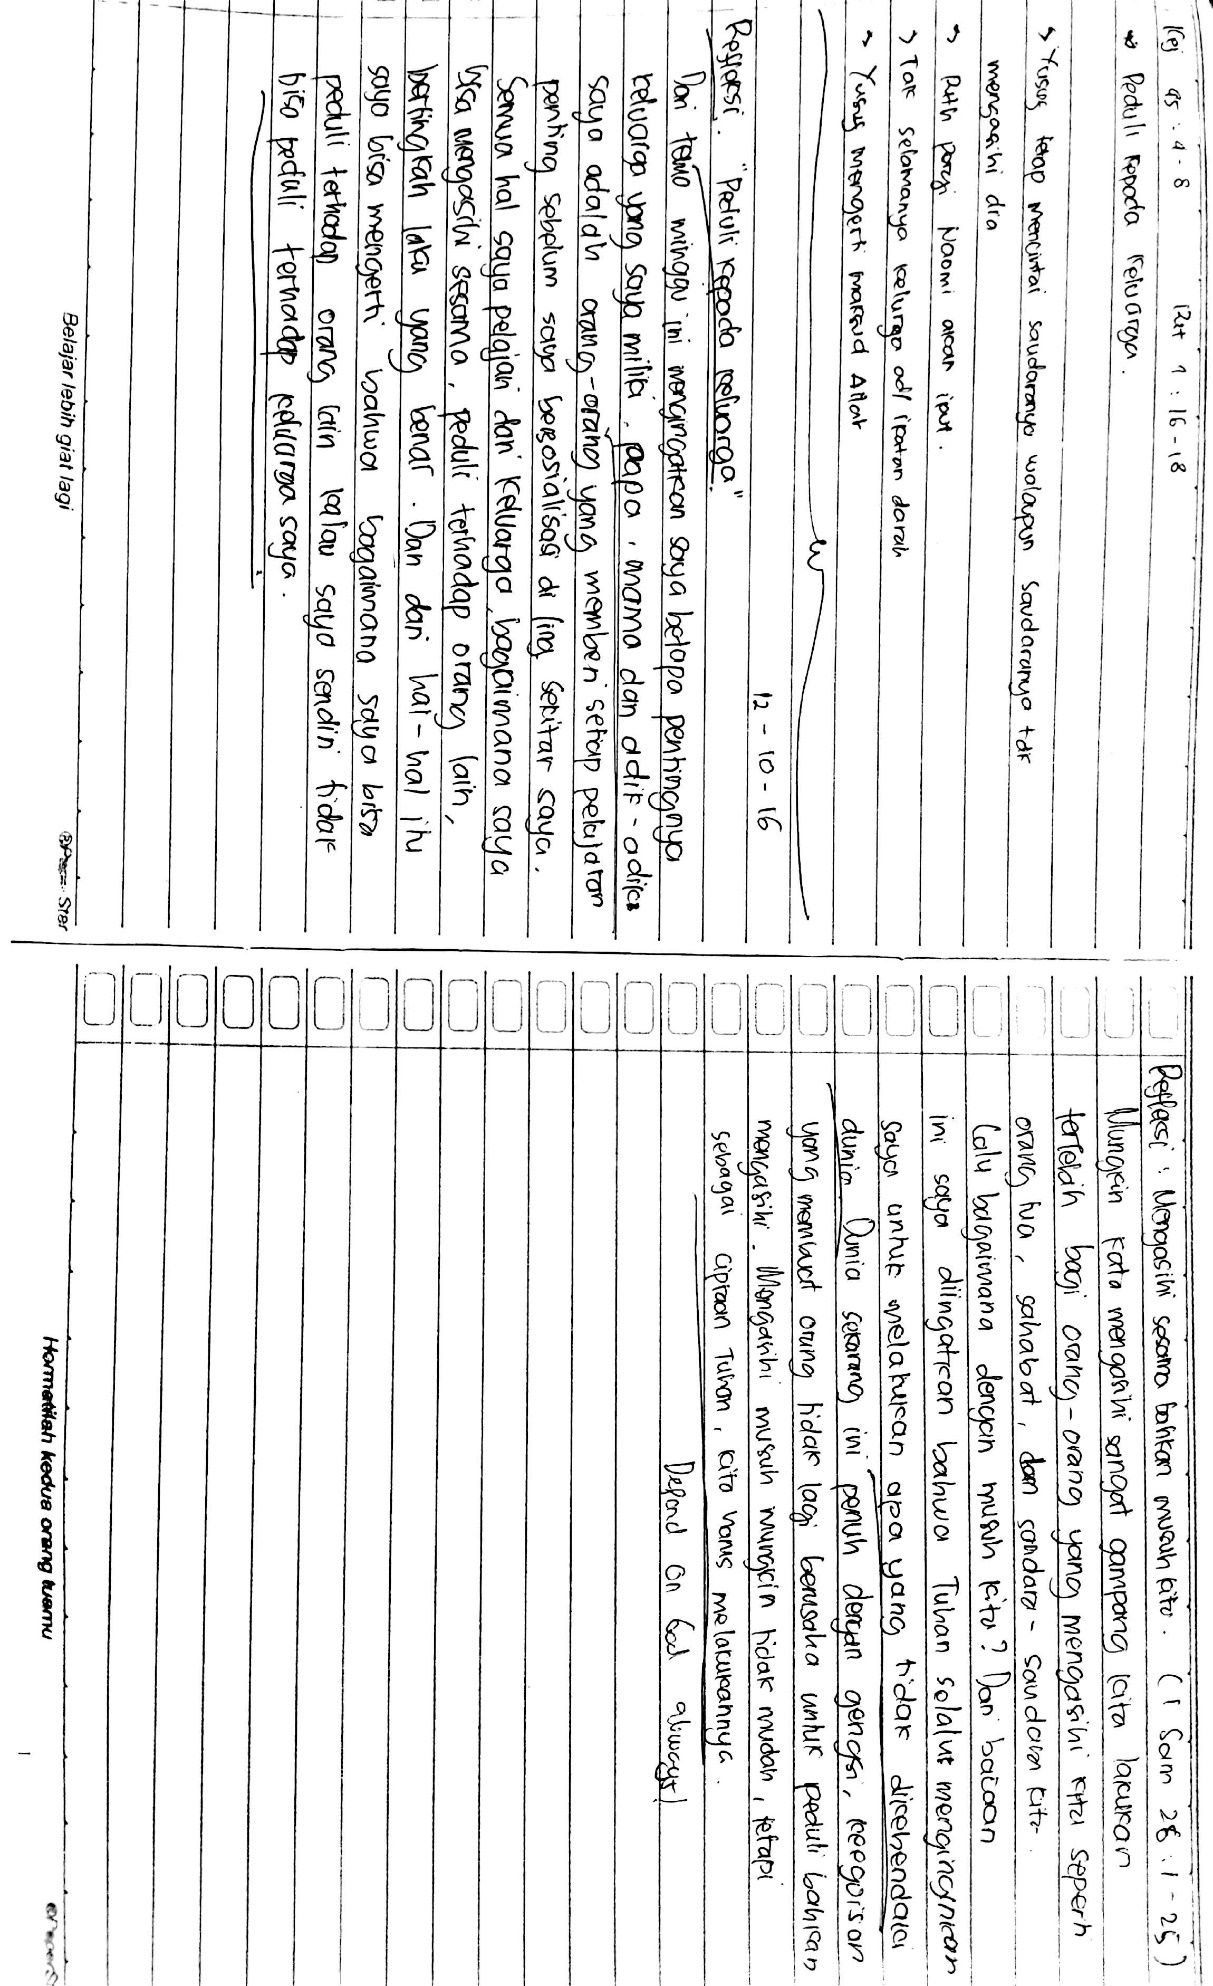 Kej 45 : 4 - 8 Rut 1 : 16 - 18
Peduli kepada keluarga.
Yusuf tetap mencintai saudaranya walapun saudaranya tdk
mengasihi dia
Ruth pergi Naomi akan ikut.
Tak selamanya kelurga adl ikatan darah
Yusuf mengerti maksud Allah
12 - 10 - 16
Refleksi. "Peduli kepada keluarga"
Dari tema minggu ini mengingatkan saya betapa pentingnya
keluarga yang saya miliki. papa, mama dan adik-adik
saya adalah orang-orang yang memberi setiap pelajaran
penting sebelum saya bersosialisasi di ling sekitar saya.
Semua hal saya pelajari dari keluarga, bagaimana saya
bisa mengasihi sesama, peduli terhadap orang lain,
bertingkah laku yang benar. Dan dari hal-hal itu
saya bisa mengerti bahwa bagaimana saya bisa
peduli terhadap orang lain kalau saya sendiri tidak
bisa peduli terhadap keluarga saya.
Belajar lebih giat lagi
Ster
Refleksi : Mengasihi sesama bahkan musuh kita. (1 Sam 28 : 1 - 25)
Mungkin kata mengasihi sangat gampang kita lakukan
terlebih bagi orang-orang yang mengasihi kita seperti
orang tua, sahabat, dan saudara-saudara kita.
Lalu bagaimana dengan musuh kita? Dari bacaan
ini saya diingatkan bahwa Tuhan selalu menginginkan
saya untuk melakukan apa yang tidak dikehendaki
dunia. Dunia sekarang ini penuh dengan gengsi, keegoisan
yang membuat orang tidak lagi berusaha untuk peduli bahkan
mengasihi. Mengasihi musuh mungkin tidak mudah, tetapi
sebagai ciptaan Tuhan, kita harus melakukannya.
Depend on God always!
Hormatilah kedua orang tuamu
1